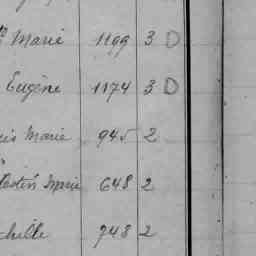 Marie 1199 3 D
Eugène 1174 3 D
is Marie 945 2
Marie 648 2
hille 748 2